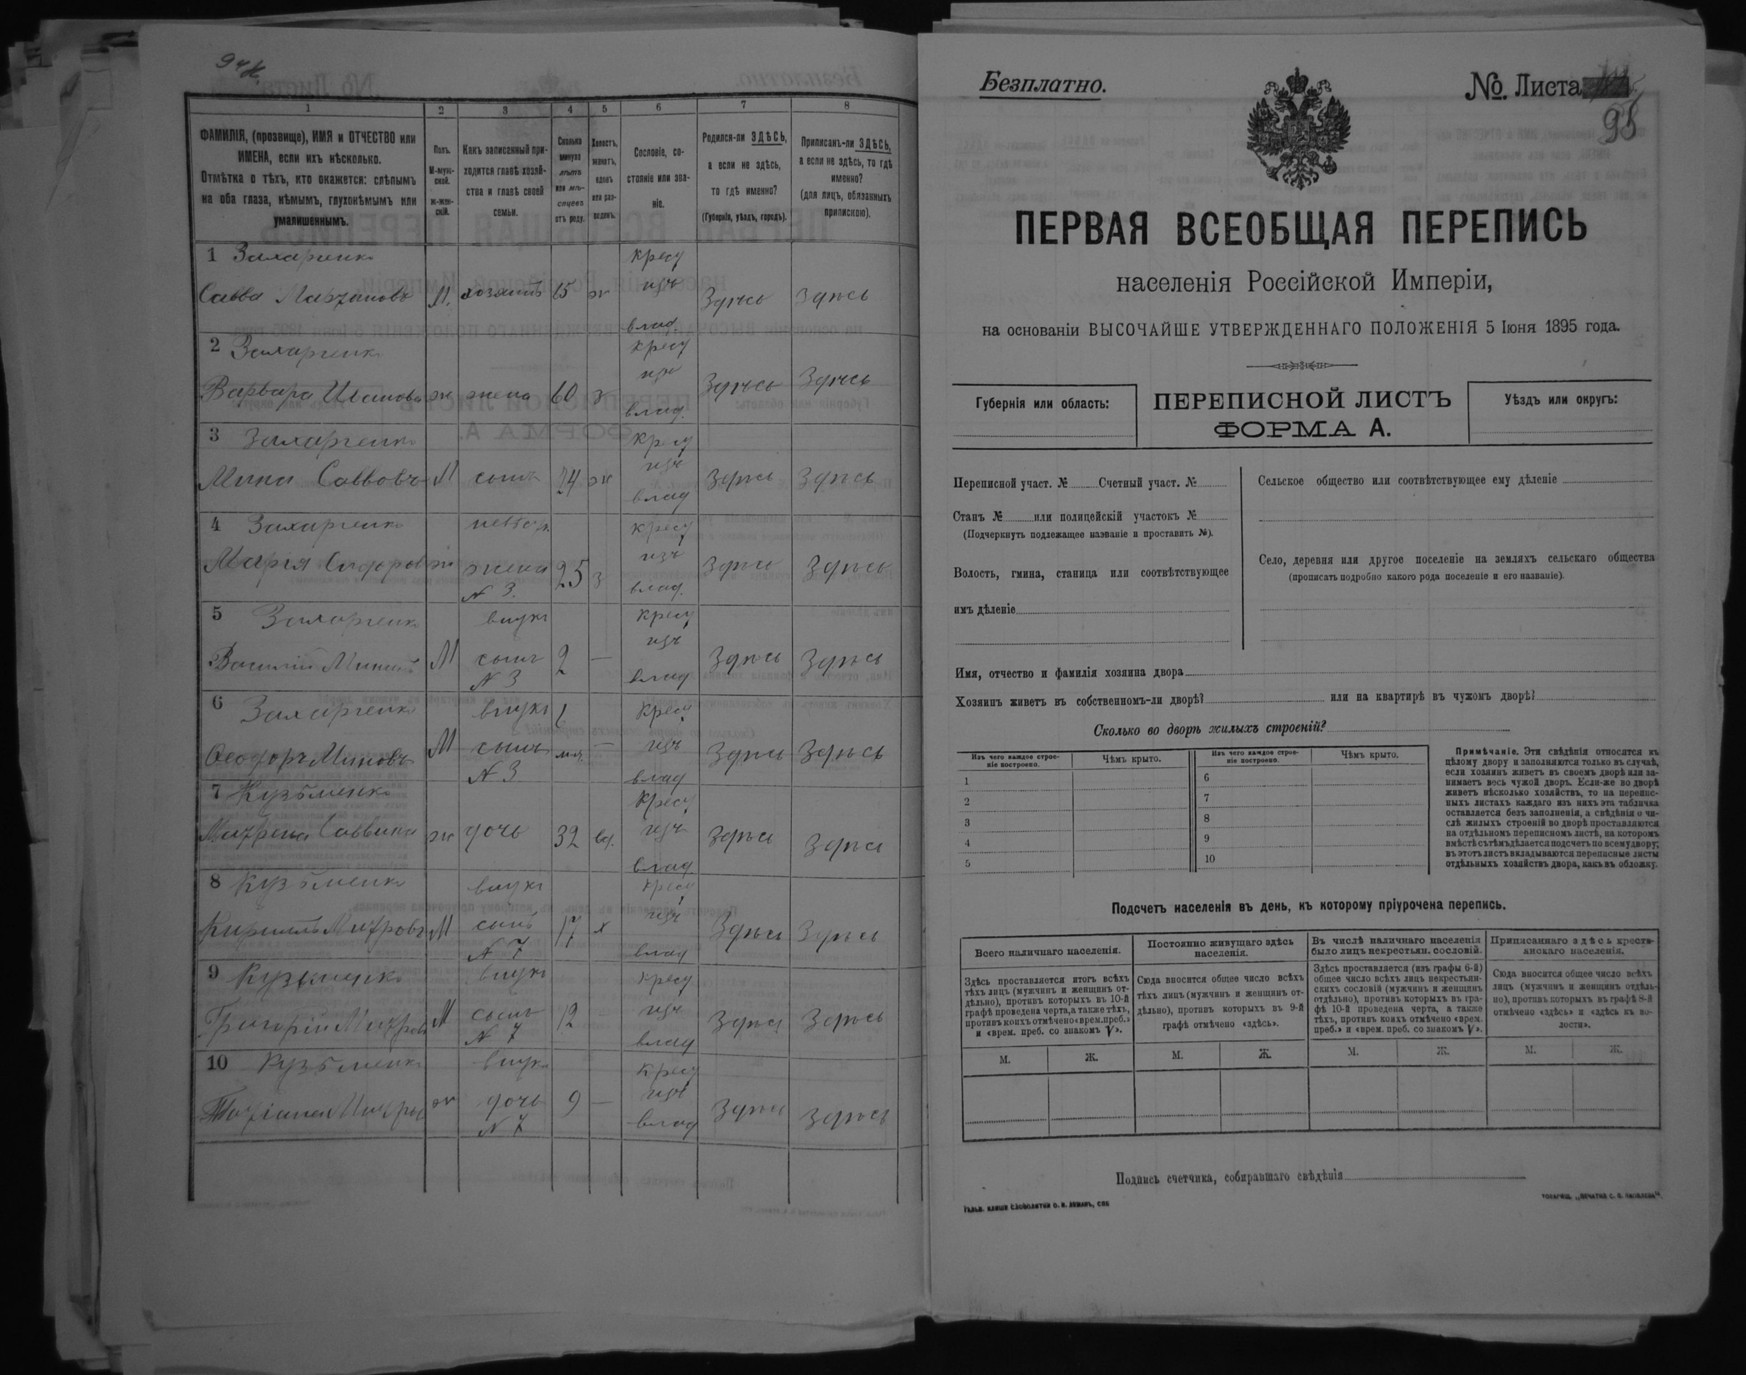 94
1 2 3 4 5 6 7 8
ФАМИЛІЯ, (прозвище), ИМЯ и ОТЧЕСТВО или
ИМЕНА, если ихъ нѣсколько.
Отмѣтка о тѣхъ, кто окажется: слѣпымъ
на оба глаза, нѣмымъ, глухонѣмымъ или
умалишеннымъ.
Полъ.
М-муж-
ской.
Ж-жен-
скій.
Какъ записанный при-
ходится главѣ хозяй-
ства и главѣ своей
семьи.
Сколько
минуло
лѣтъ
или мѣ-
сяцевъ
отъ роду.
Холостъ,
женатъ,
вдовъ
или раз-
веденъ.
Сословіе, со-
стояніе или зва-
ніе.
Родился-ли ЗДѢСЬ,
а если не здѣсь,
то гдѣ именно?
(Губернія, уѣздъ, городъ).
Приписанъ-ли ЗДѢСЬ,
а если не здѣсь, то гдѣ
именно?
(для лицъ, обязанныхъ
припискою).
1 Захарченко крест
Савва М. хозяинъ 65 ж изъ Здѣсь Здѣсь
влад.
2 Захарченко крест
Варвара Иванова ж жена 60 з изъ Здѣсь Здѣсь
влад.
3 Захарченко крест
Мина Саввовъ М сынъ ж изъ Здѣсь Здѣсь
влад
4 Захарченко невѣст. крест
Марія Сидоров ж жена 25 з изъ Здѣсь Здѣсь
N 3. влад.
5 Захарченко внукъ крест
Василій М сынъ 2 — изъ Здѣсь Здѣсь
N 3 влад
6 Захарченко внукъ 6 крест
Ѳеодоръ Миновъ М сынъ мѣс — изъ Здѣсь Здѣсь
N 3 влад
7 Кузьменко крест
Саввина ж дочь 32 вд. изъ Здѣсь Здѣсь
влад
8 Кузьменко внукъ крест
Кириллъ М сынъ 17 х изъ Здѣсь Здѣсь
N 7 влад
9 Кузьменко внукъ крест
Григорій М сынъ 12 — изъ Здѣсь Здѣсь
N 7 влад
10 Кузьменко внука крест
ж дочь 9 — изъ Здѣсь Здѣсь
N 7 влад
Безплатно.
№. Листа
98
ПЕРВАЯ ВСЕОБЩАЯ ПЕРЕПИСЬ
населенія Россійской Имперіи,
на основаніи ВЫСОЧАЙШЕ УТВЕРЖДЕННАГО ПОЛОЖЕНІЯ 5 Іюня 1895 года.
Губернія или область:
ПЕРЕПИСНОЙ ЛИСТЪ
ФОРМА А.
Уѣздъ или округъ:
Переписной участ. № Счетный участ. №
Станъ № или полицейскій участокъ №
(Подчеркнуть подлежащее названіе и проставить №).
Волость, гмина, станица или соотвѣтствующее
имъ дѣленіе
Сельское общество или соотвѣтствующее ему дѣленіе
Село, деревня или другое поселеніе на земляхъ сельскаго общества
(прописать подробно какого рода поселеніе и его названіе).
Имя, отчество и фамилія хозяина двора
Хозяинъ живетъ въ собственномъ-ли дворѣ? или на квартирѣ въ чужомъ дворѣ?
Сколько во дворѣ жилыхъ строеній?
Изъ чего каждое строе-
ніе построено.
Чѣмъ крыто.
Изъ чего каждое строе-
ніе построено.
Чѣмъ крыто.
1 6
2 7
3 8
4 9
5 10
Примѣчаніе. Эти свѣдѣнія относятся къ
цѣлому двору и заполняются только въ случаѣ,
если хозяинъ живетъ въ своемъ дворѣ или за-
нимаетъ весь чужой дворъ. Если-же во дворѣ
живетъ нѣсколько хозяйствъ, то на перепис-
ныхъ листахъ каждаго изъ нихъ эта табличка
оставляется безъ заполненія, а свѣдѣнія о чи-
слѣ жилыхъ строеній во дворѣ проставляются
на отдѣльномъ переписномъ листѣ, на которомъ
вмѣстѣ съ тѣмъ дѣлается подсчетъ по всему двору;
въ этотъ листъ вкладываются переписные листы
отдѣльныхъ хозяйствъ двора, какъ въ обложку.
Подсчетъ населенія въ день, къ которому пріурочена перепись.
Всего наличнаго населенія.
Постоянно живущаго здѣсь
населенія.
Въ числѣ наличнаго населенія
было лицъ некрестьян. сословій.
Приписаннаго здѣсь кресть-
янскаго населенія.
Здѣсь проставляется итогъ всѣхъ
тѣхъ лицъ (мужчинъ и женщинъ от-
дѣльно), противъ которыхъ въ 10-й
графѣ проведена черта, а также тѣхъ,
противъ коихъ отмѣчено «врем. преб.»
и «врем. преб. со знакомъ V».
Сюда вносится общее число всѣхъ
тѣхъ лицъ (мужчинъ и женщинъ от-
дѣльно), противъ которыхъ въ 9-й
графѣ отмѣчено «здѣсь».
Здѣсь проставляется (изъ графы 6-й)
общее число всѣхъ лицъ некрестьян-
скихъ сословій (мужчинъ и женщинъ
отдѣльно), противъ которыхъ въ гра-
фѣ 10-й проведена черта, а также
тѣхъ, противъ коихъ отмѣчено «врем.
преб.» и «врем. преб. со знакомъ V».
Сюда вносится общее число всѣхъ
лицъ (мужчинъ и женщинъ отдѣль-
но), противъ которыхъ въ графѣ 8-й
отмѣчено «здѣсь» и «здѣсь въ во-
лости».
М. Ж. М. Ж. М. Ж. М. Ж.
Подпись счетчика, собиравшаго свѣдѣнія